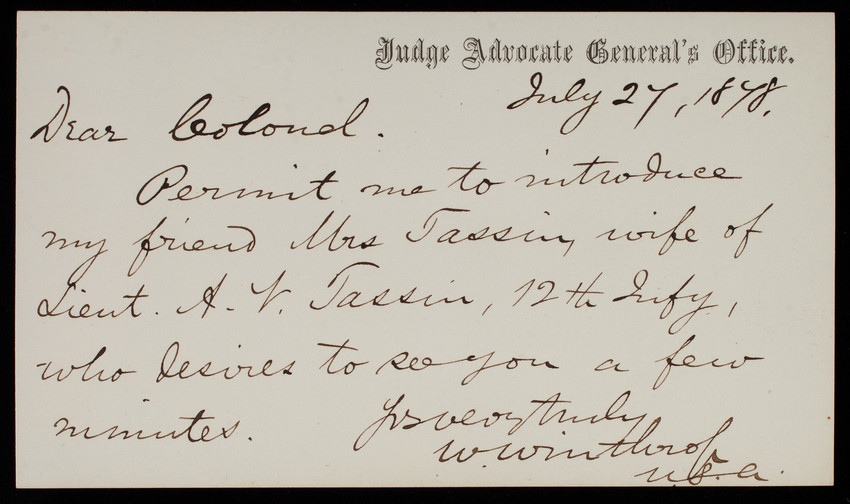 Judge Advocate General's Office.
July 27, 1878.
Dear Colonel.
Permit me to introduce
my friend Mrs Tassin, wife of
Lieut. A. V. Tassin, 12th Infy,
who desires to see you a few
minutes.
Yrs very truly
W. Winthrop
U.S.A.